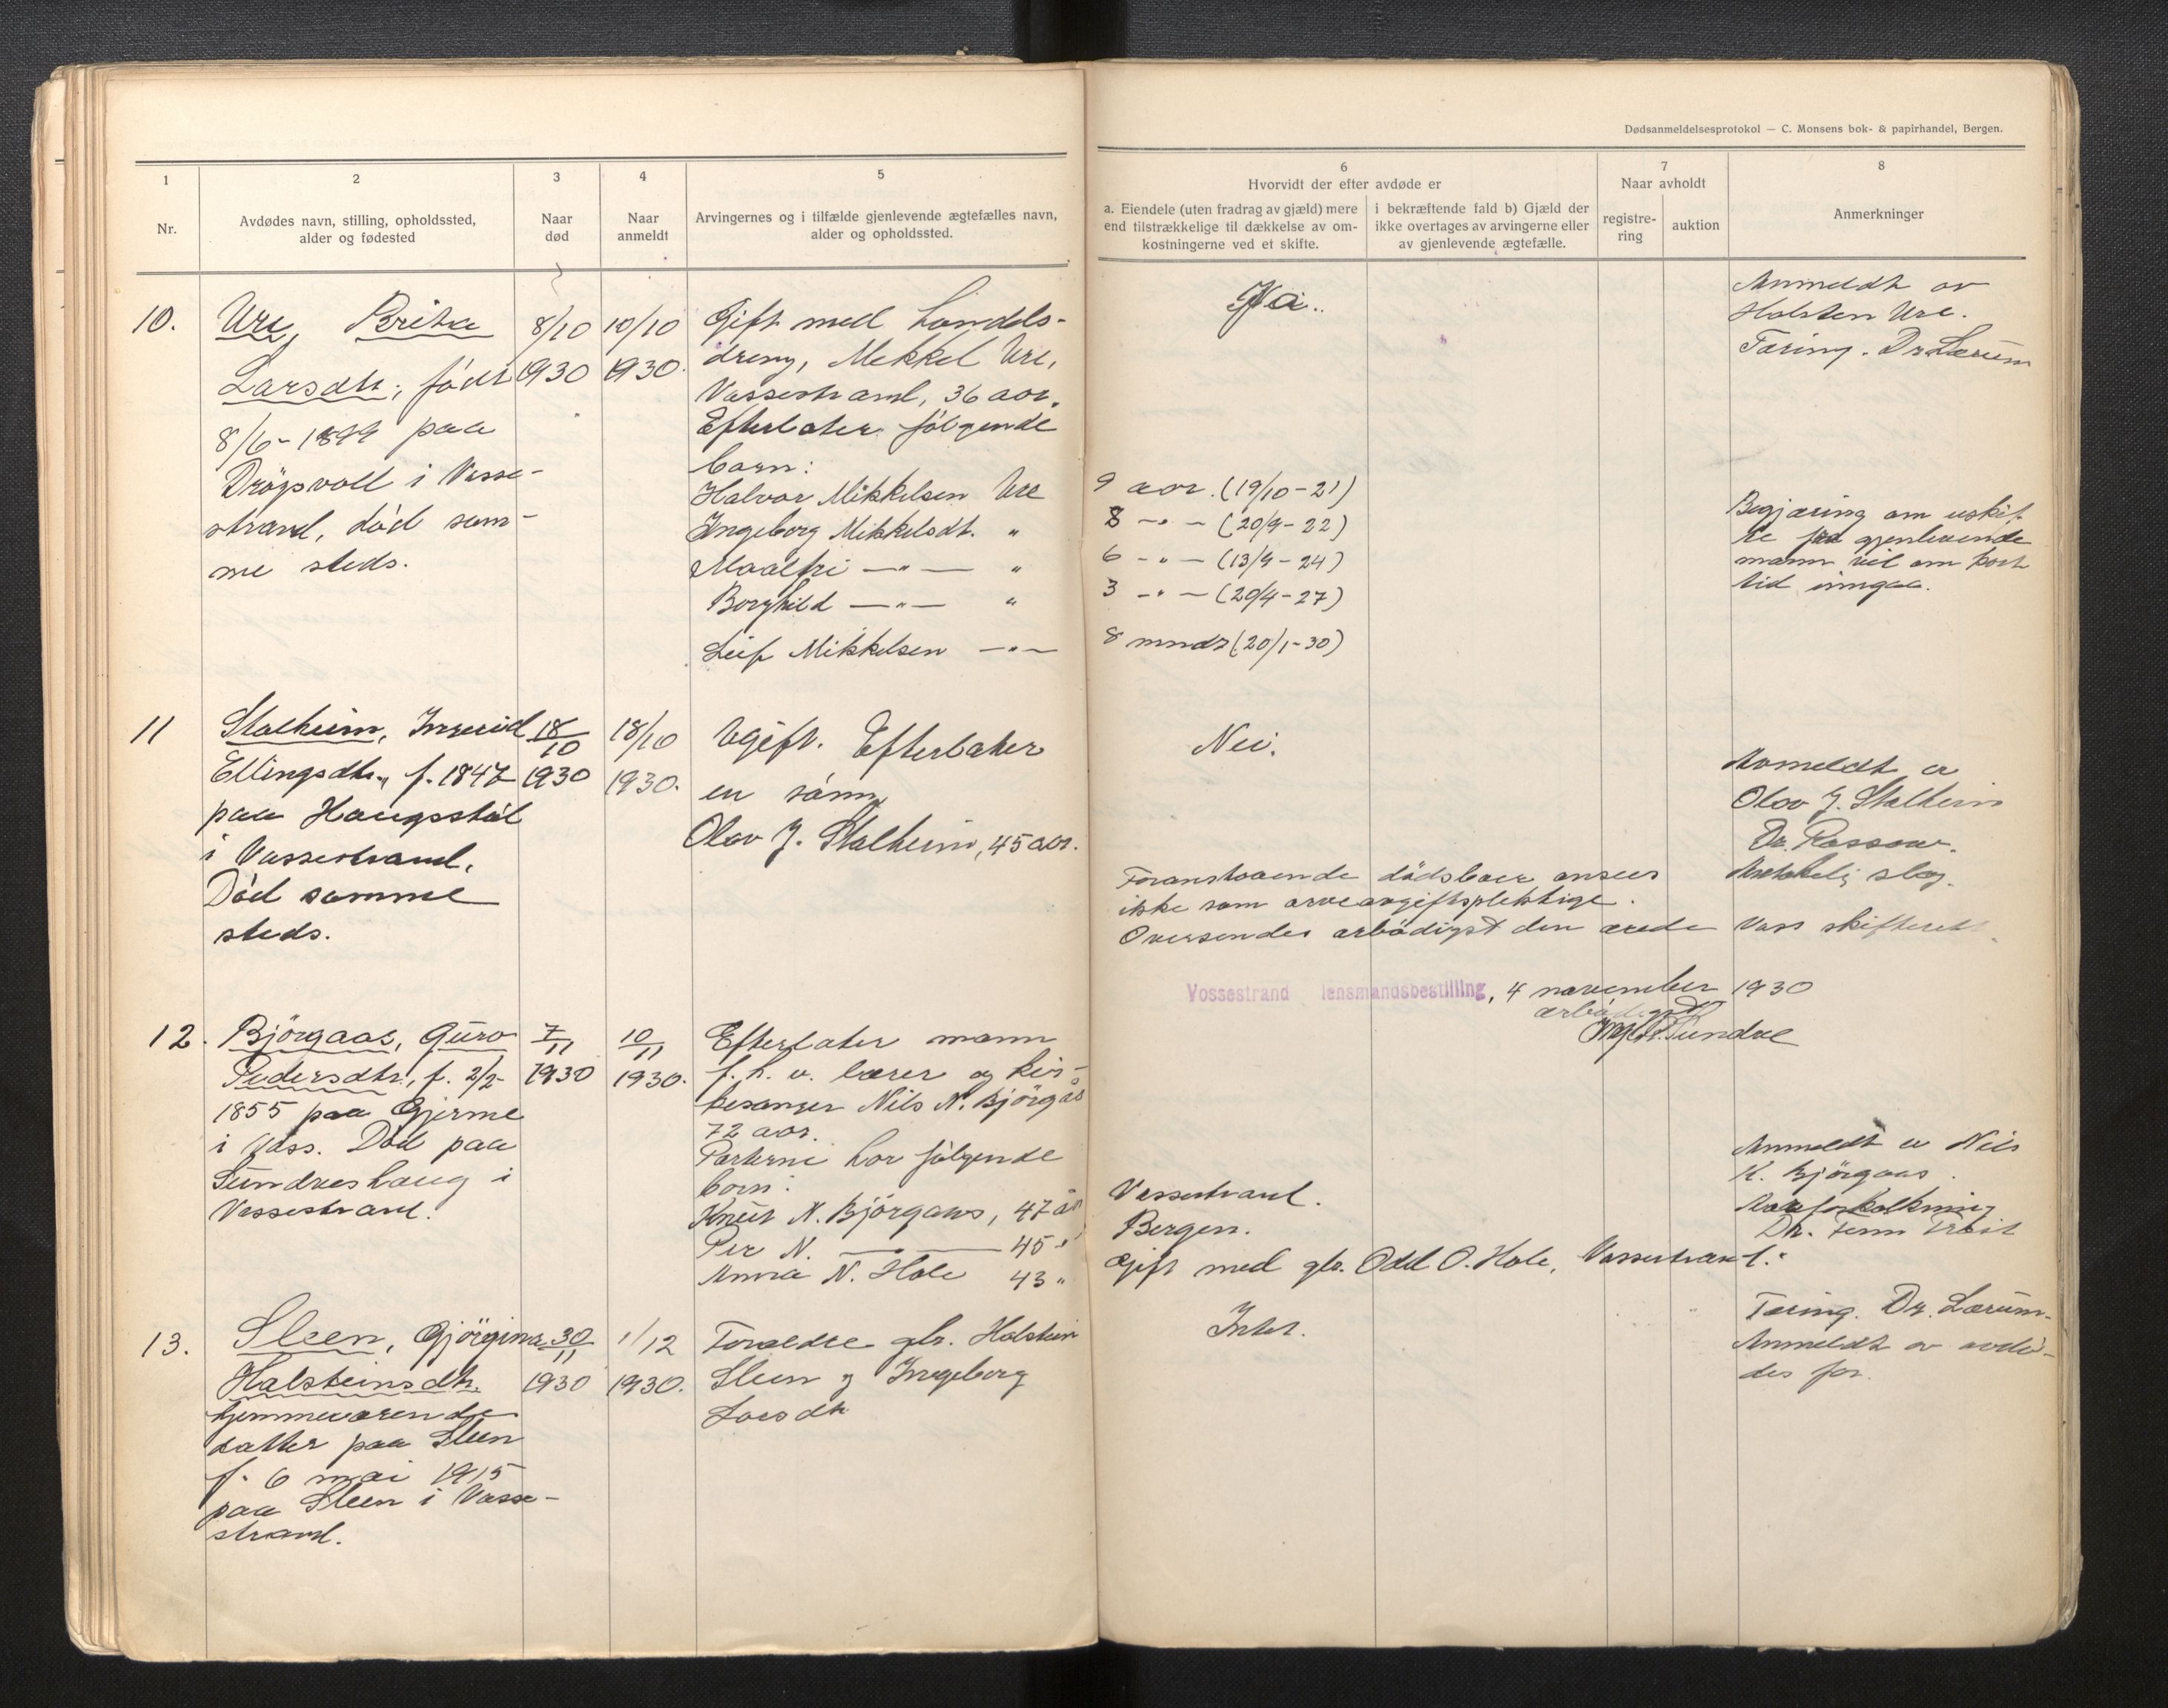 Dødsanmeldelsesprotokol — C. Monsens bok- & papirhandel, Bergen.
1
Nr.
2
Avdødes navn, stilling, opholdssted,
alder og fødested
3
Naar
død
4
Naar
anmeldt
5
Arvingernes og i tilfælde gjenlevende ægtefælles navn,
alder og opholdssted.
6
Hvorvidt der efter avdøde er
a. Eiendele (uten fradrag av gjæld) mere
end tilstrækkelige til dækkelse av om-
kostningerne ved et skifte.
i bekræftende fald b) Gjæld der
ikke overtages av arvingerne eller
av gjenlevende ægtefælle.
7
Naar avholdt
registre-
ring
auktion
8
Anmerkninger
10.
Ure, Brita
Larsdtr., födt
8/6-1899 paa
i Vosse-
strand, död sam-
me steds.
8/10
1930
10/10
1930.
Gift med handels-
dreng, Mekkel Ure,
Vossestrand, 36 aar.
Efterlater følgende
barn:
Halvor Mikkelsen Ure
Ingeborg Mikkelsdt. "
Maalfri —"— "
Borghild —"— "
Leif Mikkelsen —"—
Ja.
9 aar. (19/10-21)
8 -"- (20/9-22)
6 -"- (13/9-24)
3 -"- (20/4-27)
8 mndr (20/1-30)
Anmeldt av
Halsten Ure.
Tæring. Dr Lærum
Begjæring om uskif-
te fra gjenlevende
mann vil om kort
tid inngaa.
11
Stalheim, Ingerid
Ellingsdtr., f. 1847
paa Haugsstöl
i Vossestrand.
Död samme
steds.
18/10
1930
18/10
1930.
Ugift. Efterlater
en sönn
Olav J. Stalheim, 45 aar.
Nei.
Anmeldt av
Olav J. Stalheim
Dr.
slag.
Foranstaaende dödsboer ansees
ikke som arveavgiftspliktige.
Oversendes arbödigst den ærede Voss skifterett.
Vossestrand lensmandsbestilling, 4 november 1930
arbödigst
Sundve
12.
Björgaas, Guro
Pedersdtr., f. 2/2-
1855 paa Gjerme
i Voss. Död paa
Sundveshaug i
Vossestrand.
7/11
1930
10/11
1930.
Efterlater mann
f. h. v. lærer og kir-
kesanger Nils N. Björgås
72 aar.
Parterne har følgende
born:
Knut N. Björgaas, 47 år
Per N. —"— 45 "
Anna N. Hole 43 "
Vossestrand.
Bergen.
Gift med gbr. Odd O. Hole, Vossestrand.
Anmeldt av Nils
K. Björgaas.
Aareforkalkning
Dr. Finn
13.
Sleen, Gjörgina
Halsteinsdtr.
hjemmeværende
datter paa Sleen
f. 6 mai 1915
paa Sleen i Vosse-
strand.
30/11
1930
1/12
1930.
Foreldre gbr. Halstein
Sleen og Ingeborg
Larsdtr
Intet.
Tæring. Dr. Lærum.
Anmeldt av avdö-
des far.